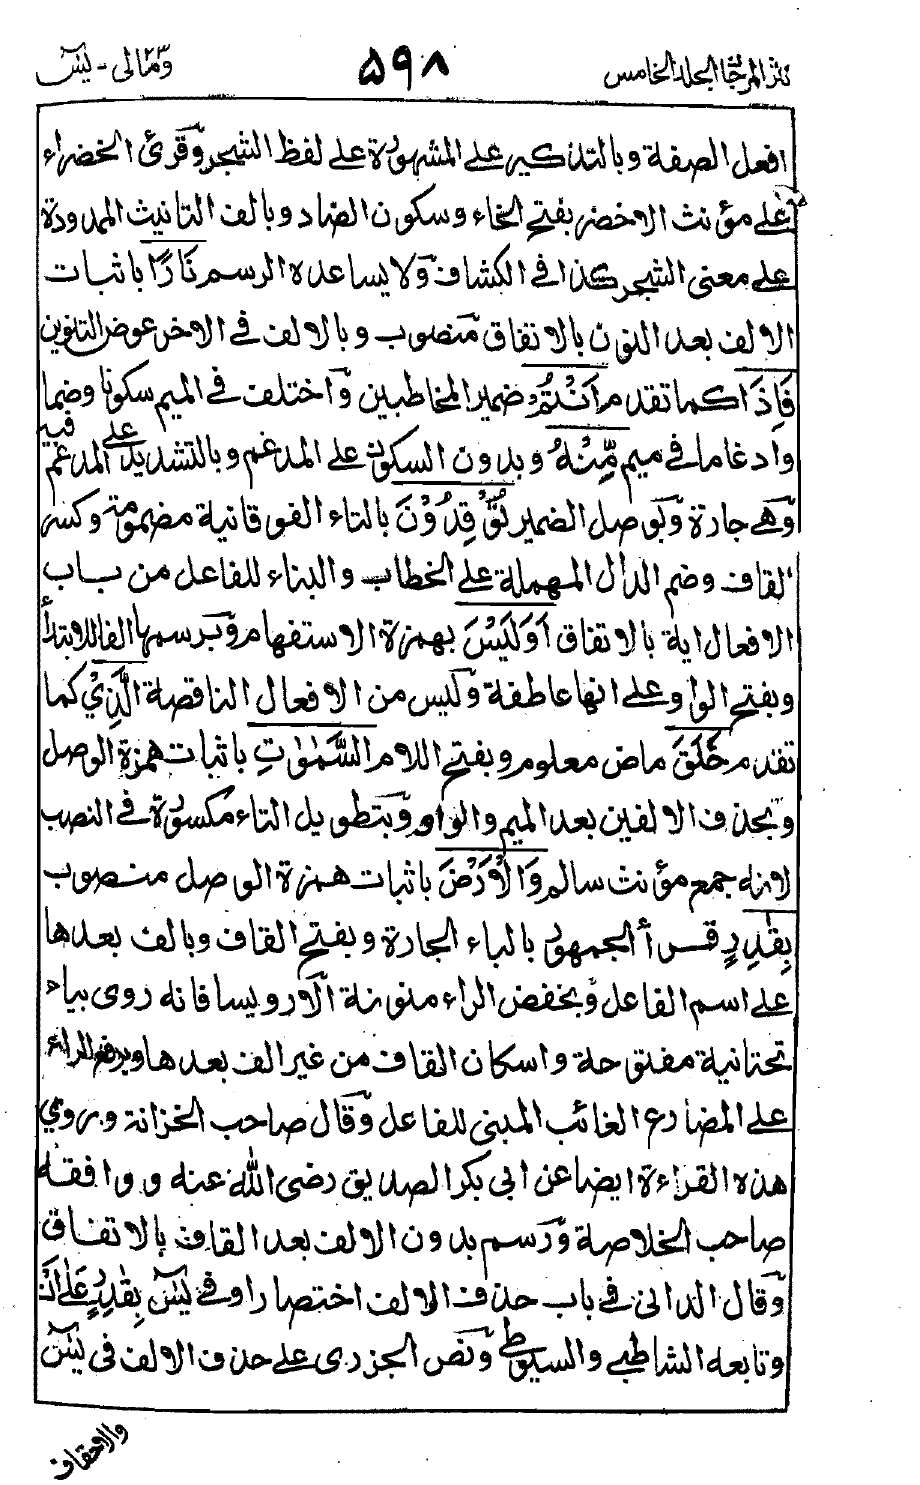 نثر المرجان المجلد الخامس ۵۹۸ ومالی - یٰسٓ
افعل الصفة وبالتذكير على المشهورة على لفظ الشجر وقرئ الخضراء
على مؤنث الاخضر بفتح الخاء وسكون الضاد وبالف التانيث الممدودة
على معنى الشجر كذا في الكشاف ولا يساعده الرسم نَارًا باثبات
الالف بعد النون بالاتفاق منصوب وبالالف في الاخر عوض التنوين
فَاِذَا كما تقدم اَنْتُمْ ضمير المخاطبين واختلف في الميم سكونا وضما
وادغاما في ميم مِّنْهُ وبدون السكون على المدغم وبالتشديد على المدغم فيه
وهي جارة وبوصل الضمير تُوْقِدُوْنَ بالتاء الفوقانية مضمومة وكسر
القاف وضم الدال المهملة على الخطاب والبناء للفاعل من باب
الافعال اية بالاتفاق اَوَلَيْسَ بهمزة الاستفهام وبرسمها الفا للابتدأ
وبفتح الواو على انها عاطفة وليس من الافعال الناقصة الَّذِيْ كما
تقدم خَلَقَ ماض معلوم وبفتح اللام السَّمٰوٰتِ باثبات همزة الوصل
وبحذف الالفين بعد الميم والواو وبتطويل التاء مكسورة في النصب
لانه جمع مؤنث سالم وَالْاَرْضَ باثبات همزة الوصل منصوب
بِقٰدِرٍ قرأ الجمهور بالباء الجارة وبفتح القاف وبالف بعدها
على اسم الفاعل وبخفض الراء منونة الا رويسا فانه روى بياء
تحتانية مفتوحة واسكان القاف من غير الف بعدها وبرفع الراء
على المضارع الغائب المبني للفاعل وقال صاحب الخزانة وروي
هذه القراءة ايضا عن ابي بكر الصديق رضى الله عنه ووافقه
صاحب الخلاصة ورسم بدون الالف بعد القاف بالاتفاق
وقال الداني في باب حذف الالف اختصارا وفي يٰسٓ بِقٰدِرٍ عَلٰى اَنْ
وتابعه الشاطبي والسيوطي ونص الجزري على حذف الالف في يٰسٓ
والاحقاف